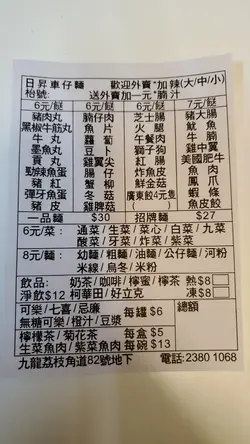 日昇車仔麵 歡迎外賣*加辣(大/中/小)
枱號: 送外賣加一元*腩汁
6元/餸 6元/餸 6元/餸 7元/餸
豬肉丸 腩仔肉 芝士腸 豬大腸
黑椒牛筋丸 魚片 火腿 魷魚
牛丸 蘿蔔 午餐肉 牛肚
墨魚丸 豆卜 獅子狗 雞中翼
貢丸 雞翼尖 紅腸 美國肥牛
勁辣魚蛋 雞腸 炸魚皮 魚則
豬紅 蟹柳 鮮金菇 鳳爪
彈牙魚蛋 冬菇 廣東餃4元隻 蝦條
豬皮 雞髀菇 魚皮餃
一品麵 $30 招牌麵 $27
6元/菜: 通菜/生菜/菜心/白菜/九菜
酸菜/芽菜/炸菜/紫菜
8元/麵: 幼麵/粗麵/油麵/公仔麵/河粉
米線/烏冬/米粉
飲品: 奶茶/咖啡/檸蜜/檸茶 熱$8
淨飲$12 柯華田/好立克 凍$8
可樂/七喜/忌廉 每罐$6 總額
無糖可樂/橙汁/豆漿
檸檬茶/菊花茶 每盒$5
生菜魚肉/紫菜魚肉 每碗$13
九龍荔枝角道82號地下 電話:2380 1068